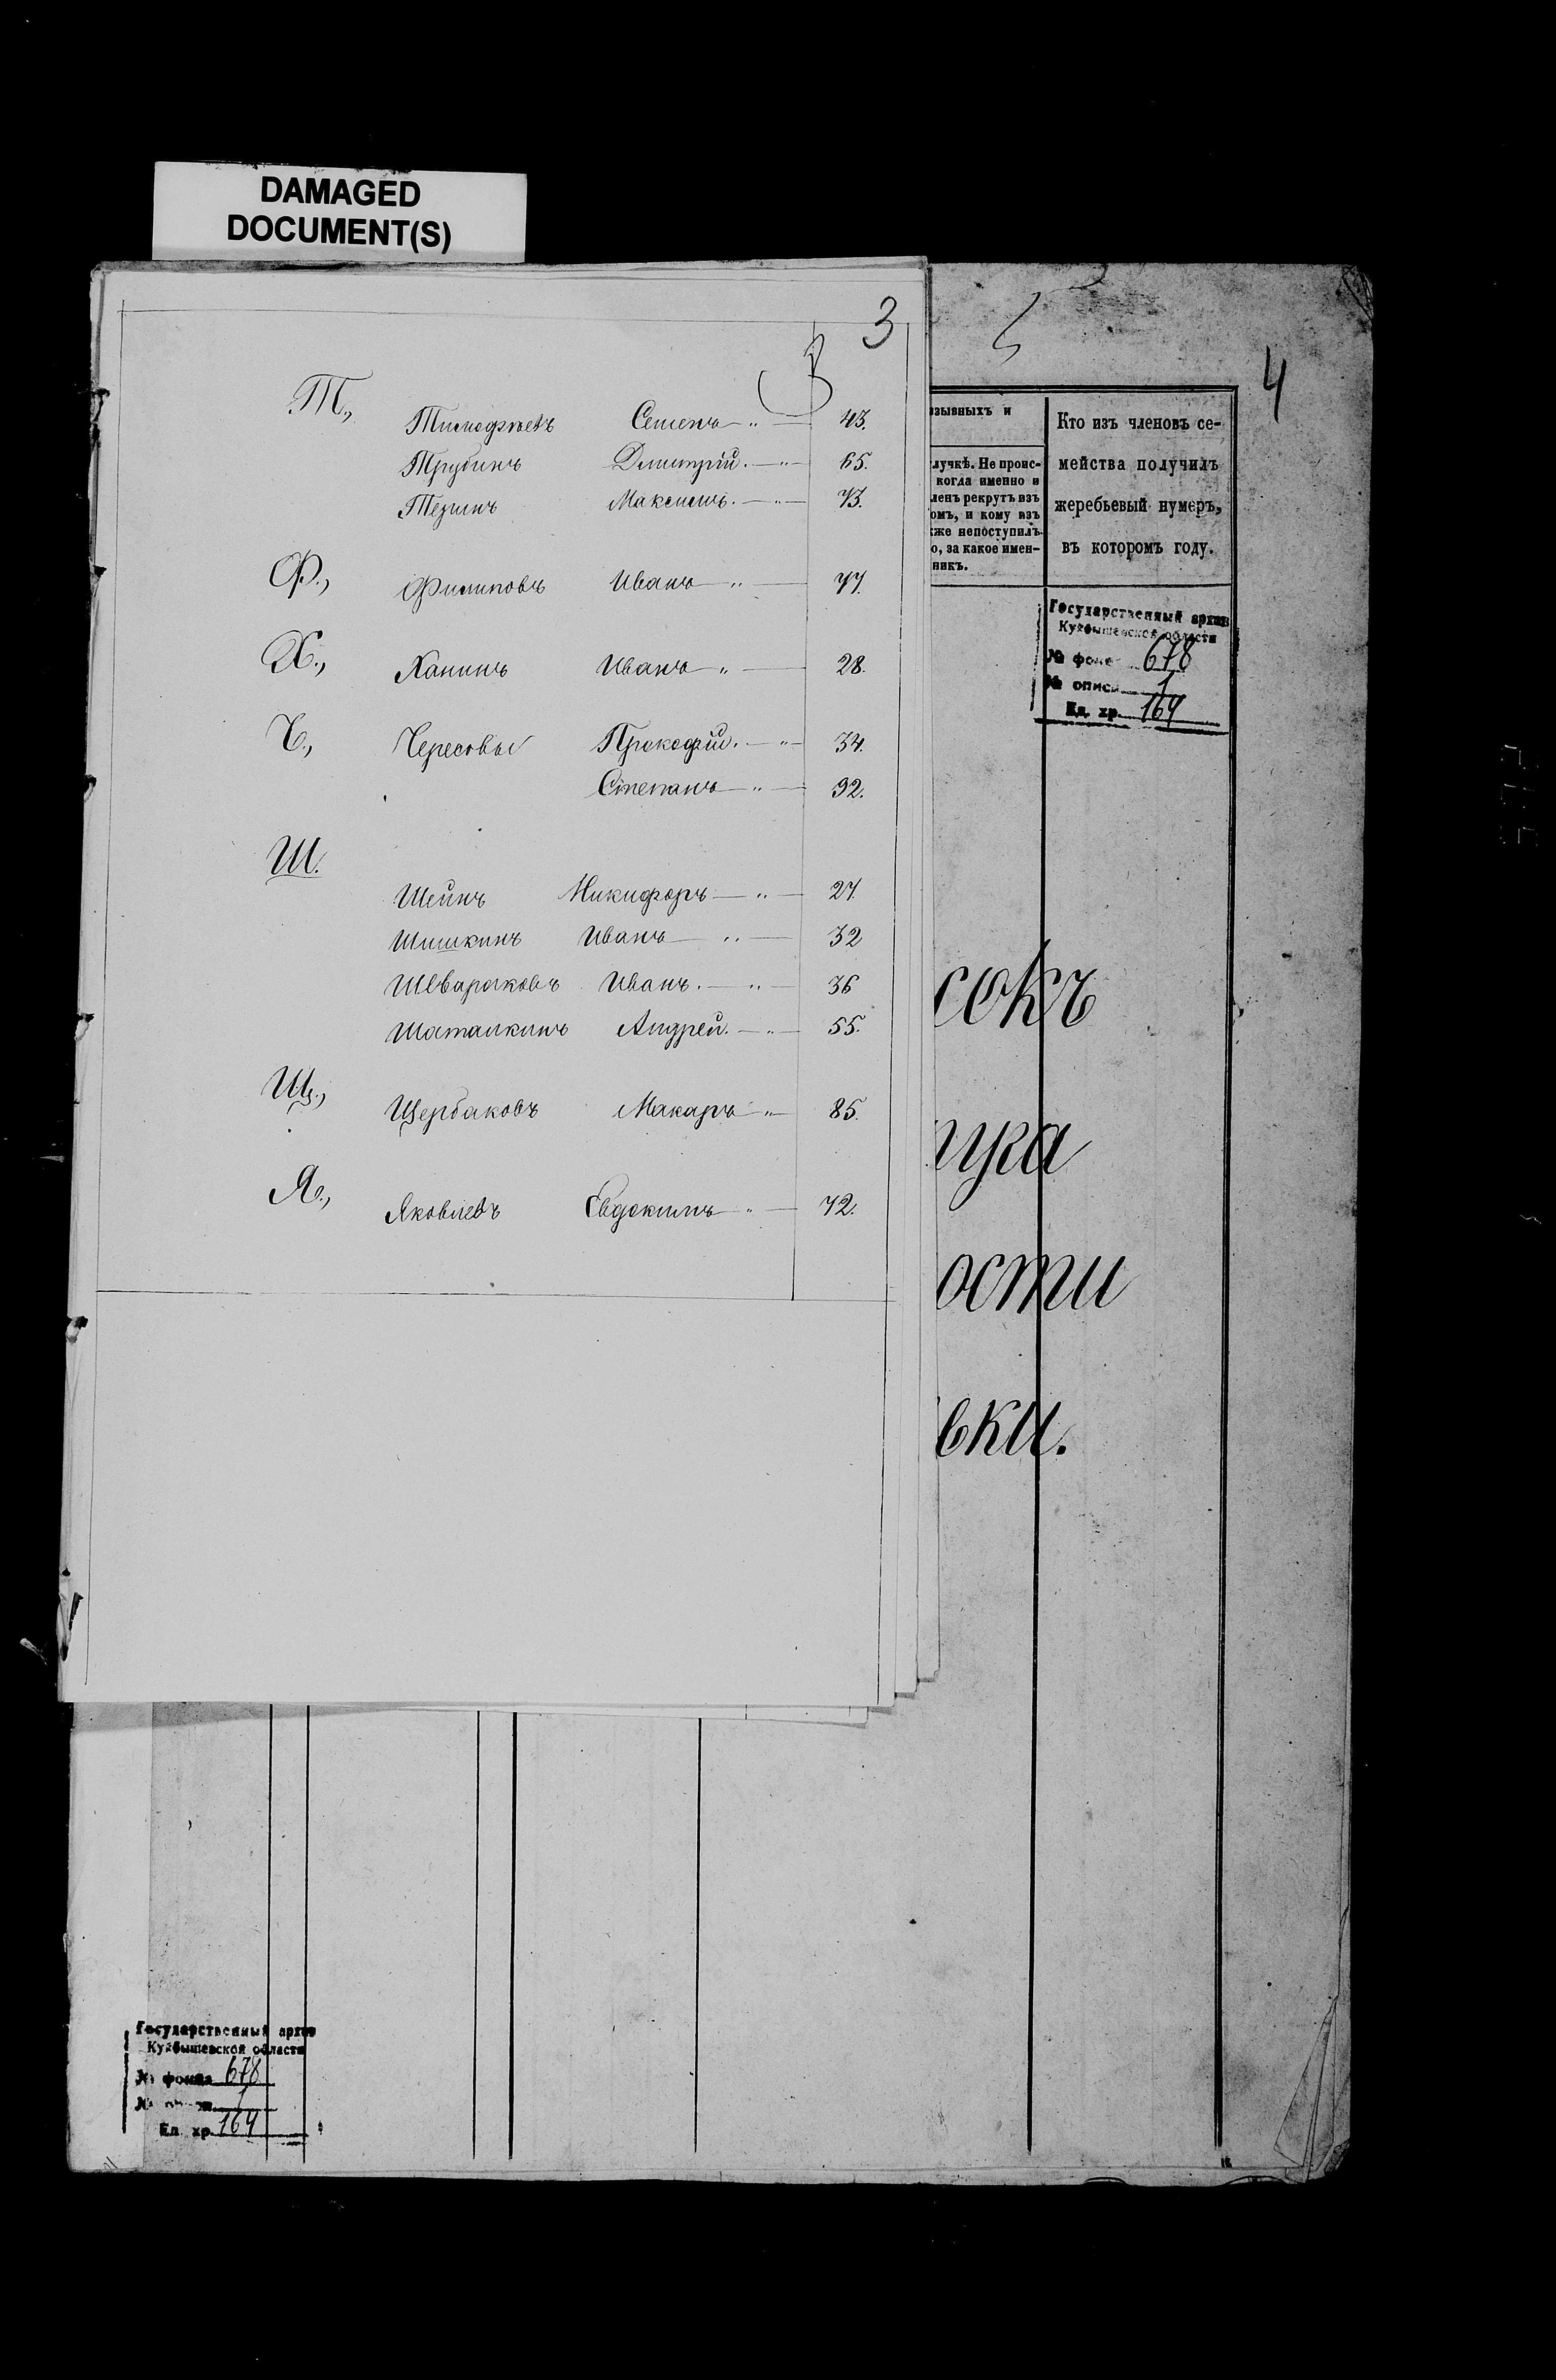 DAMAGED
DOCUMENT(S)
3
Т.,
Тимофѣевъ Семенъ „ 43.
Трубинъ Дмитрій. „ 65.
Терзинъ Максимъ. „ 73.
Ф.,
Филиповъ Иванъ „ 77.
Х.,
Ханинъ Иванъ „ 28.
Ч.,
Чересовы Прокофій. „ 34.
Степанъ „ 92.
Ш.
Шеинъ Никифоръ „ 27.
Шишкинъ Иванъ „ 32
Швараковъ Иванъ. „ 36
Шаталкинъ Андрей. „ 55.
Щ.,
Щербаковъ Макаръ „ 85.
Я.,
Яковлевъ Евдокимъ „ 72.
5
4
зывныхъ и
лучкѣ. Не проис-
когда именно и
ленъ рекрутъ изъ
омъ, и кому изъ
же непоступилъ
о, за какое имен-
никъ.
Кто изъ членовъ се-
мейства получилъ
жеребьевый нумеръ,
въ которомъ году.
Государственный архив
Куйбышевской области
№ фонда 678
№ описи 1
Ед. хр. 164
сокъ
ости
вки.
Государственный архив
Куйбышевской области
№ фонда 678
№ описи 1
Ед. хр. 164